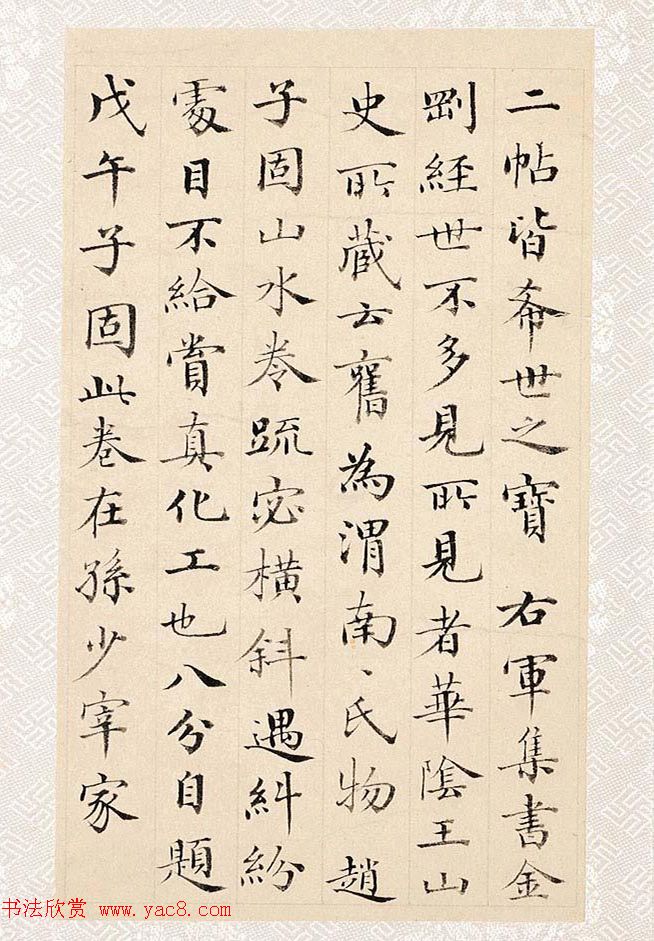 二帖皆希世之寶 右軍集書金
剛經世不多見所見者華陰王山
史所藏云舊為渭南〻氏物 趙
子固山水卷疏宓橫斜遇糾紛
處目不給賞真化工也八分自題
戊午子固此卷在孫少宰家
书法欣赏 www.yac8.com